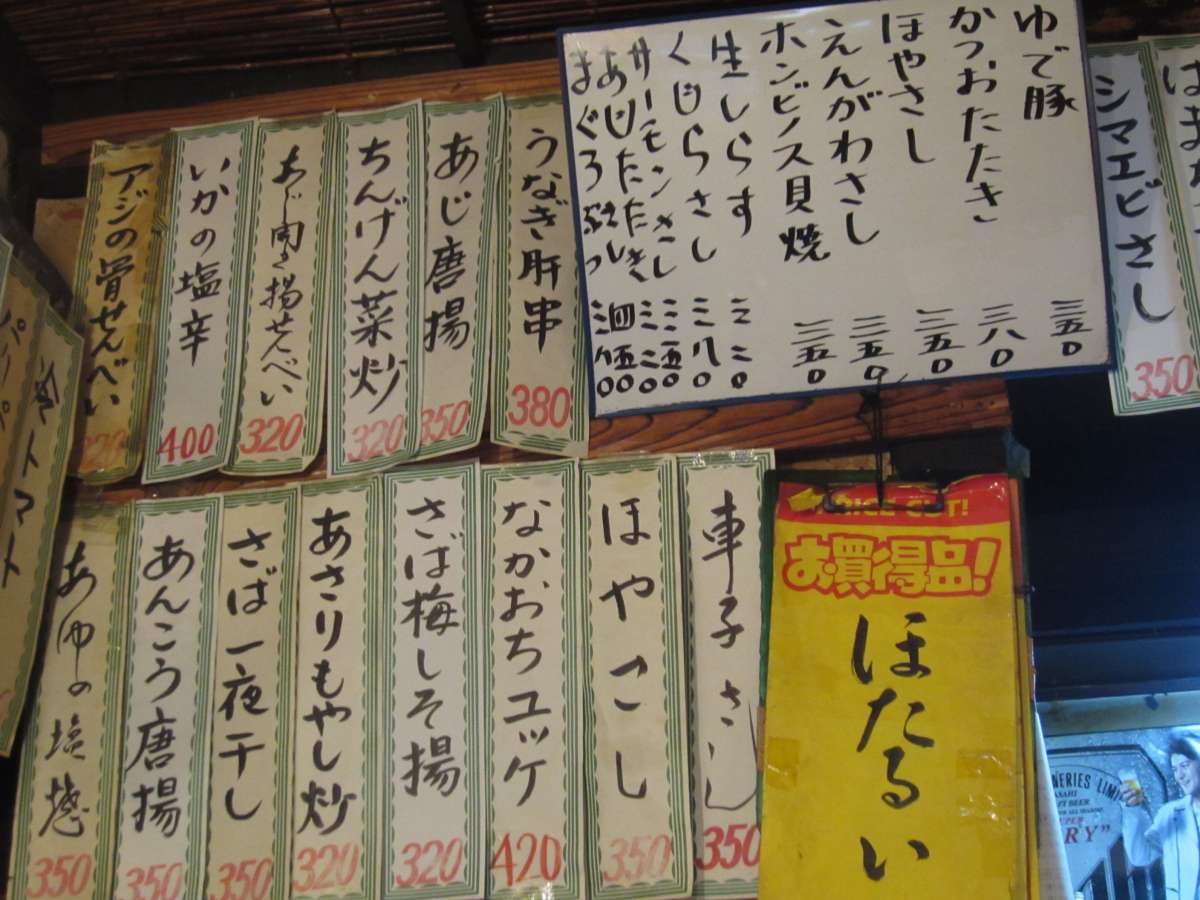 ゆで豚 三五〇
かつおたたき 三八〇
ほやさし 三五〇
えんがわさし 三五〇
ホンビノス貝焼 三五〇
生しらす 三二〇
くじらさし 三八〇
サーモンさし 三五〇
あじたたき
まぐろぶつ
シマエビさし
350
うなぎ肝串
380
あじ唐揚
350
ちんげん菜炒
320
あじ開き揚せんべい
320
いかの塩辛
400
アジの骨せんべい
320
トマト
車子さし
350
ほやさし
350
なかおちユッケ
420
さば梅しそ揚
320
あさりもやし炒
320
さば一夜干し
350
あんこう唐揚
350
あゆの塩焼
350
PRICE CUT!
お買得品!
ほたるい